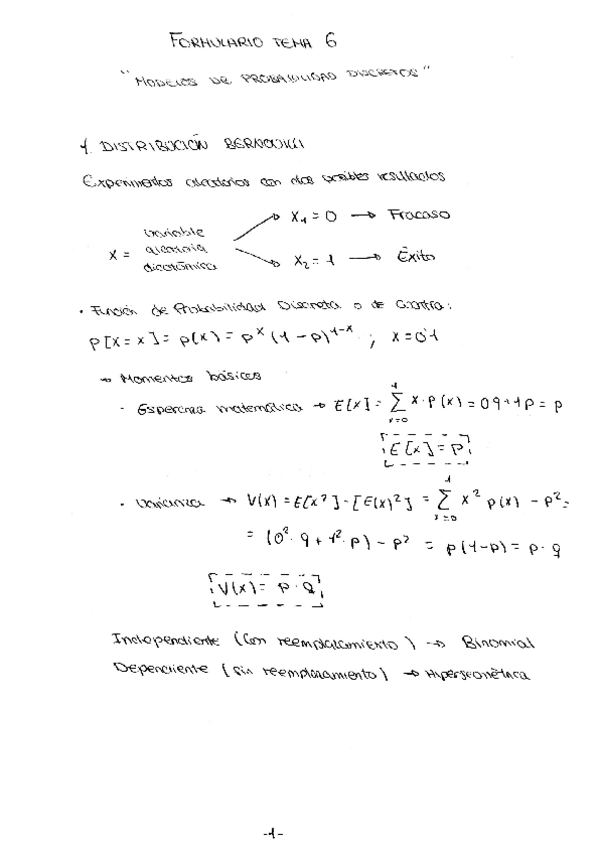 FORMULARIO TEMA 6
"MODELOS DE PROBABILIDAD DISCRETOS"
1. DISTRIBUCIÓN BERNOULLI
Experimentos aleatorios con dos posibles resultados
X = variable aleatoria dicotómica
X₁ = 0 → Fracaso
X₂ = 1 → Éxito
• Función de Probabilidad Discreta o de Cuantía:
P[X = x] = p(x) = p^x (1 - p)^{1-x} ; x = 0,1
→ Momentos básicos
- Esperanza matemática → E[x] = ∑_{x=0}^{1} x · p(x) = 0 q + 1 p = p
E[x] = p
- Varianza → V(x) = E[x²] - [E(x)²] = ∑_{x=0}^{1} x² p(x) - p² =
= (0² · q + 1² · p) - p² = p(1-p) = p · q
V(x) = p · q
Independiente (con reemplazamiento) → Binomial
Dependiente (sin reemplazamiento) → Hipergeométrica
-1-